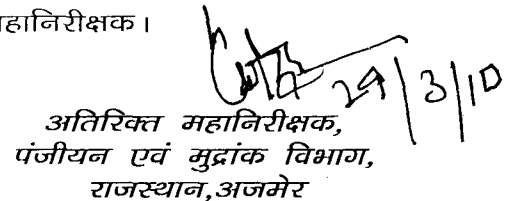 महानिरीक्षक।
29/3/10
अतिरिक्त महानिरीक्षक,
पंजीयन एवं मुद्रांक विभाग,
राजस्थान,अजमेर